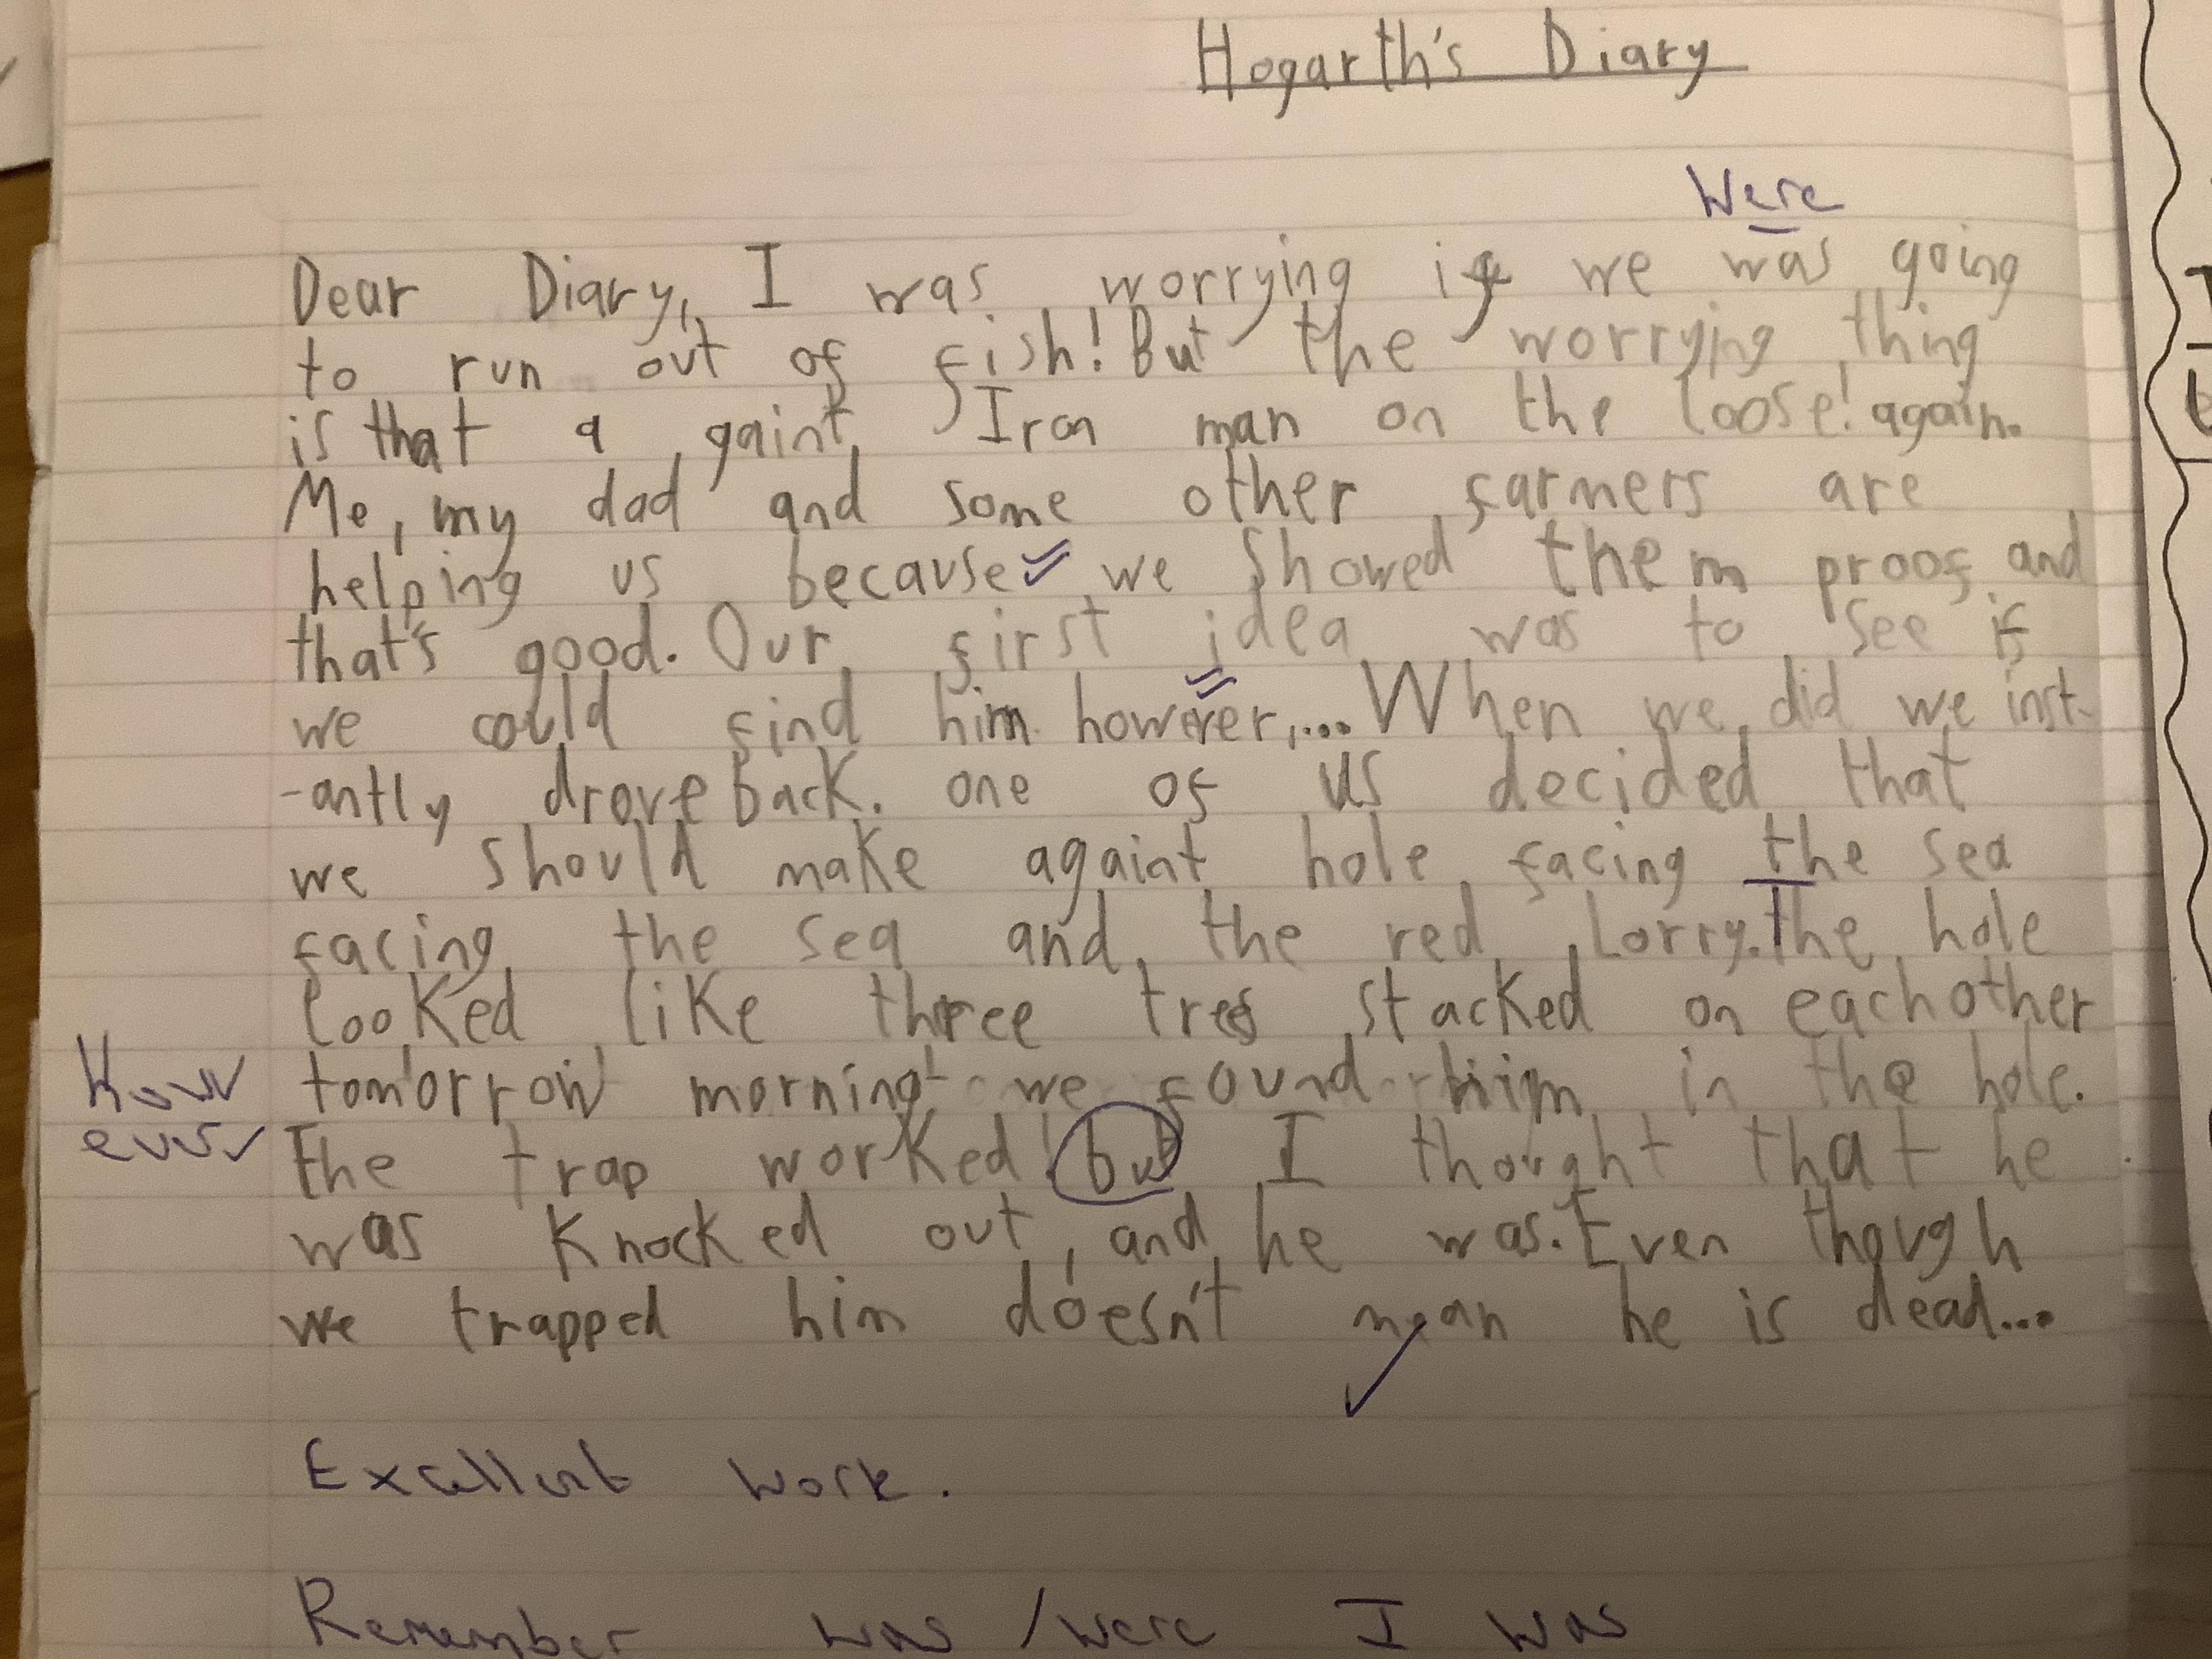 Hogarth's Diary
Were
Dear Diary, I was worrying if we was going
to run out of fish! But the worrying thing
is that a gaint Iron man on the loose! again.
Me, my dad and some other farmers are
helping us because we showed them proof and
that's good. Our first idea was to see if
we could find him however,... When we did we inst-
-antly drove back. one of us decided that
we should make a gaint hole facing the sea
facing the sea and the red Lorry. The hole
looked like three trees stacked on eachother
tomorrow morning we found him in the hole.
How
ever
The trap worked! but I thought that he
was Knocked out, and he was. Even though
we trapped him doesn't mean he is dead...
Excellent work.
Remember was / were I was